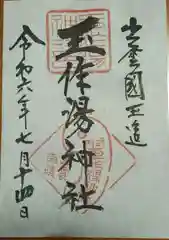 出雲國玉造
玉作湯神社
令和六年七月十四日